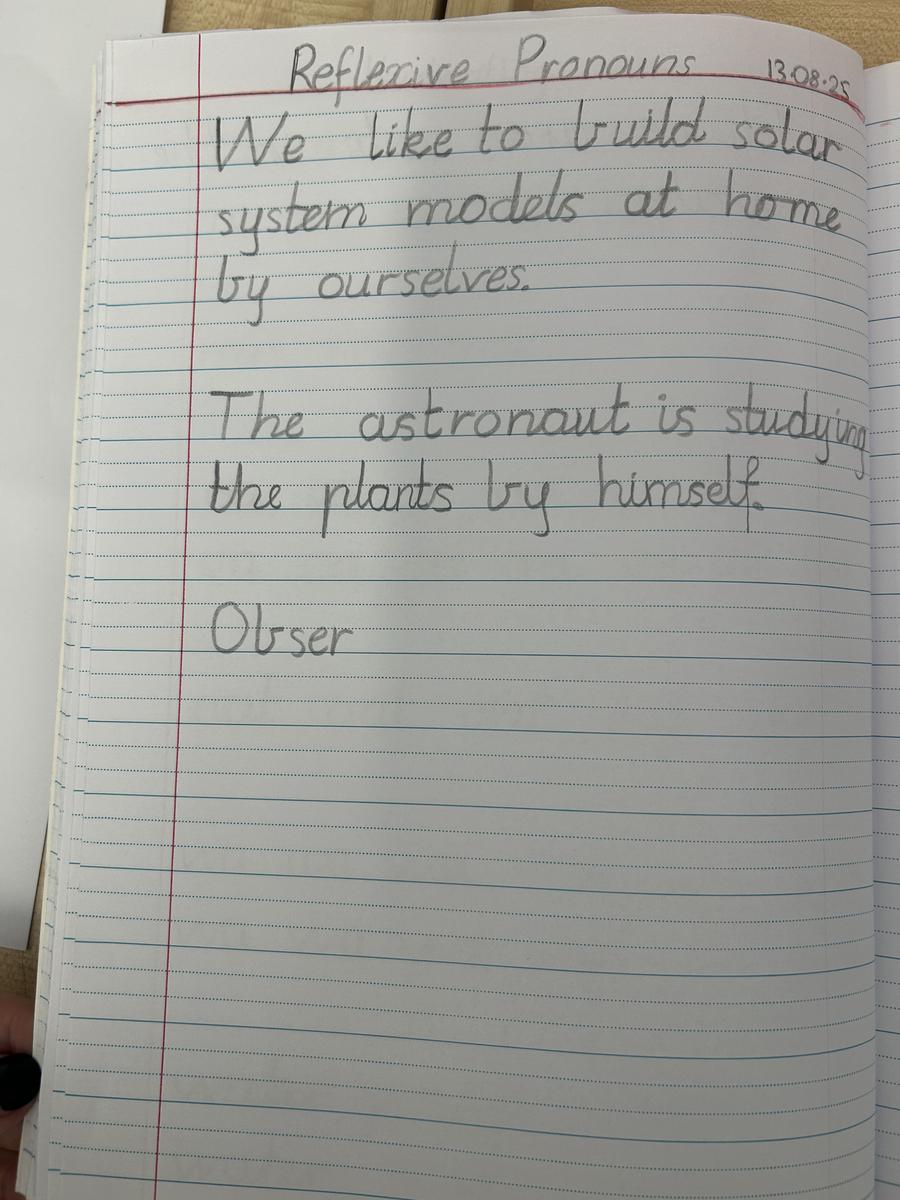 Reflexive Pronouns 13.08.25
We like to build solar
system models at home
by ourselves.
The astronaut is studying
the plants by himself.
Obser